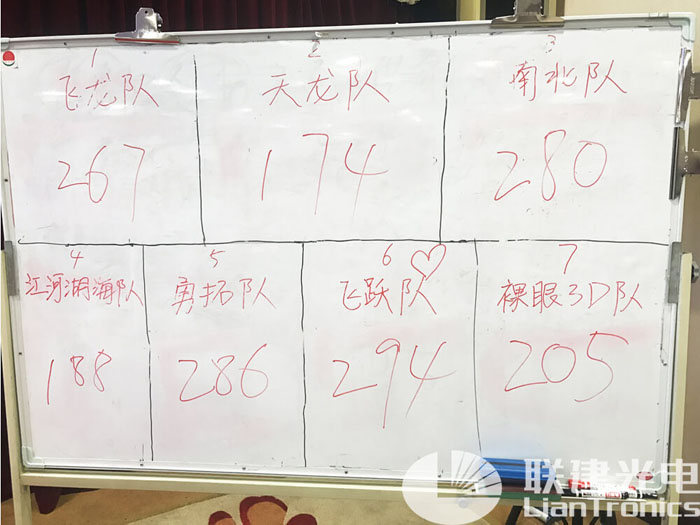 1
飞龙队
267
2
天龙队
174
3
南北队
280
4
江河湖海队
188
5
勇拓队
286
6
飞跃队
294
7
裸眼3D队
205
联建光电
LianTronics